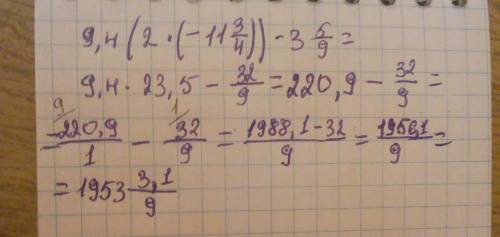 9,4 (2 · (-11 3/4)) - 3 5/9 =
9,4 · 23,5 - 32/9 = 220,9 - 32/9 =
= 9/ 220,9/1 - 1/ 32/9 = 1988,1-32/9 = 1956,1/9 =
= 1953 3,1/9